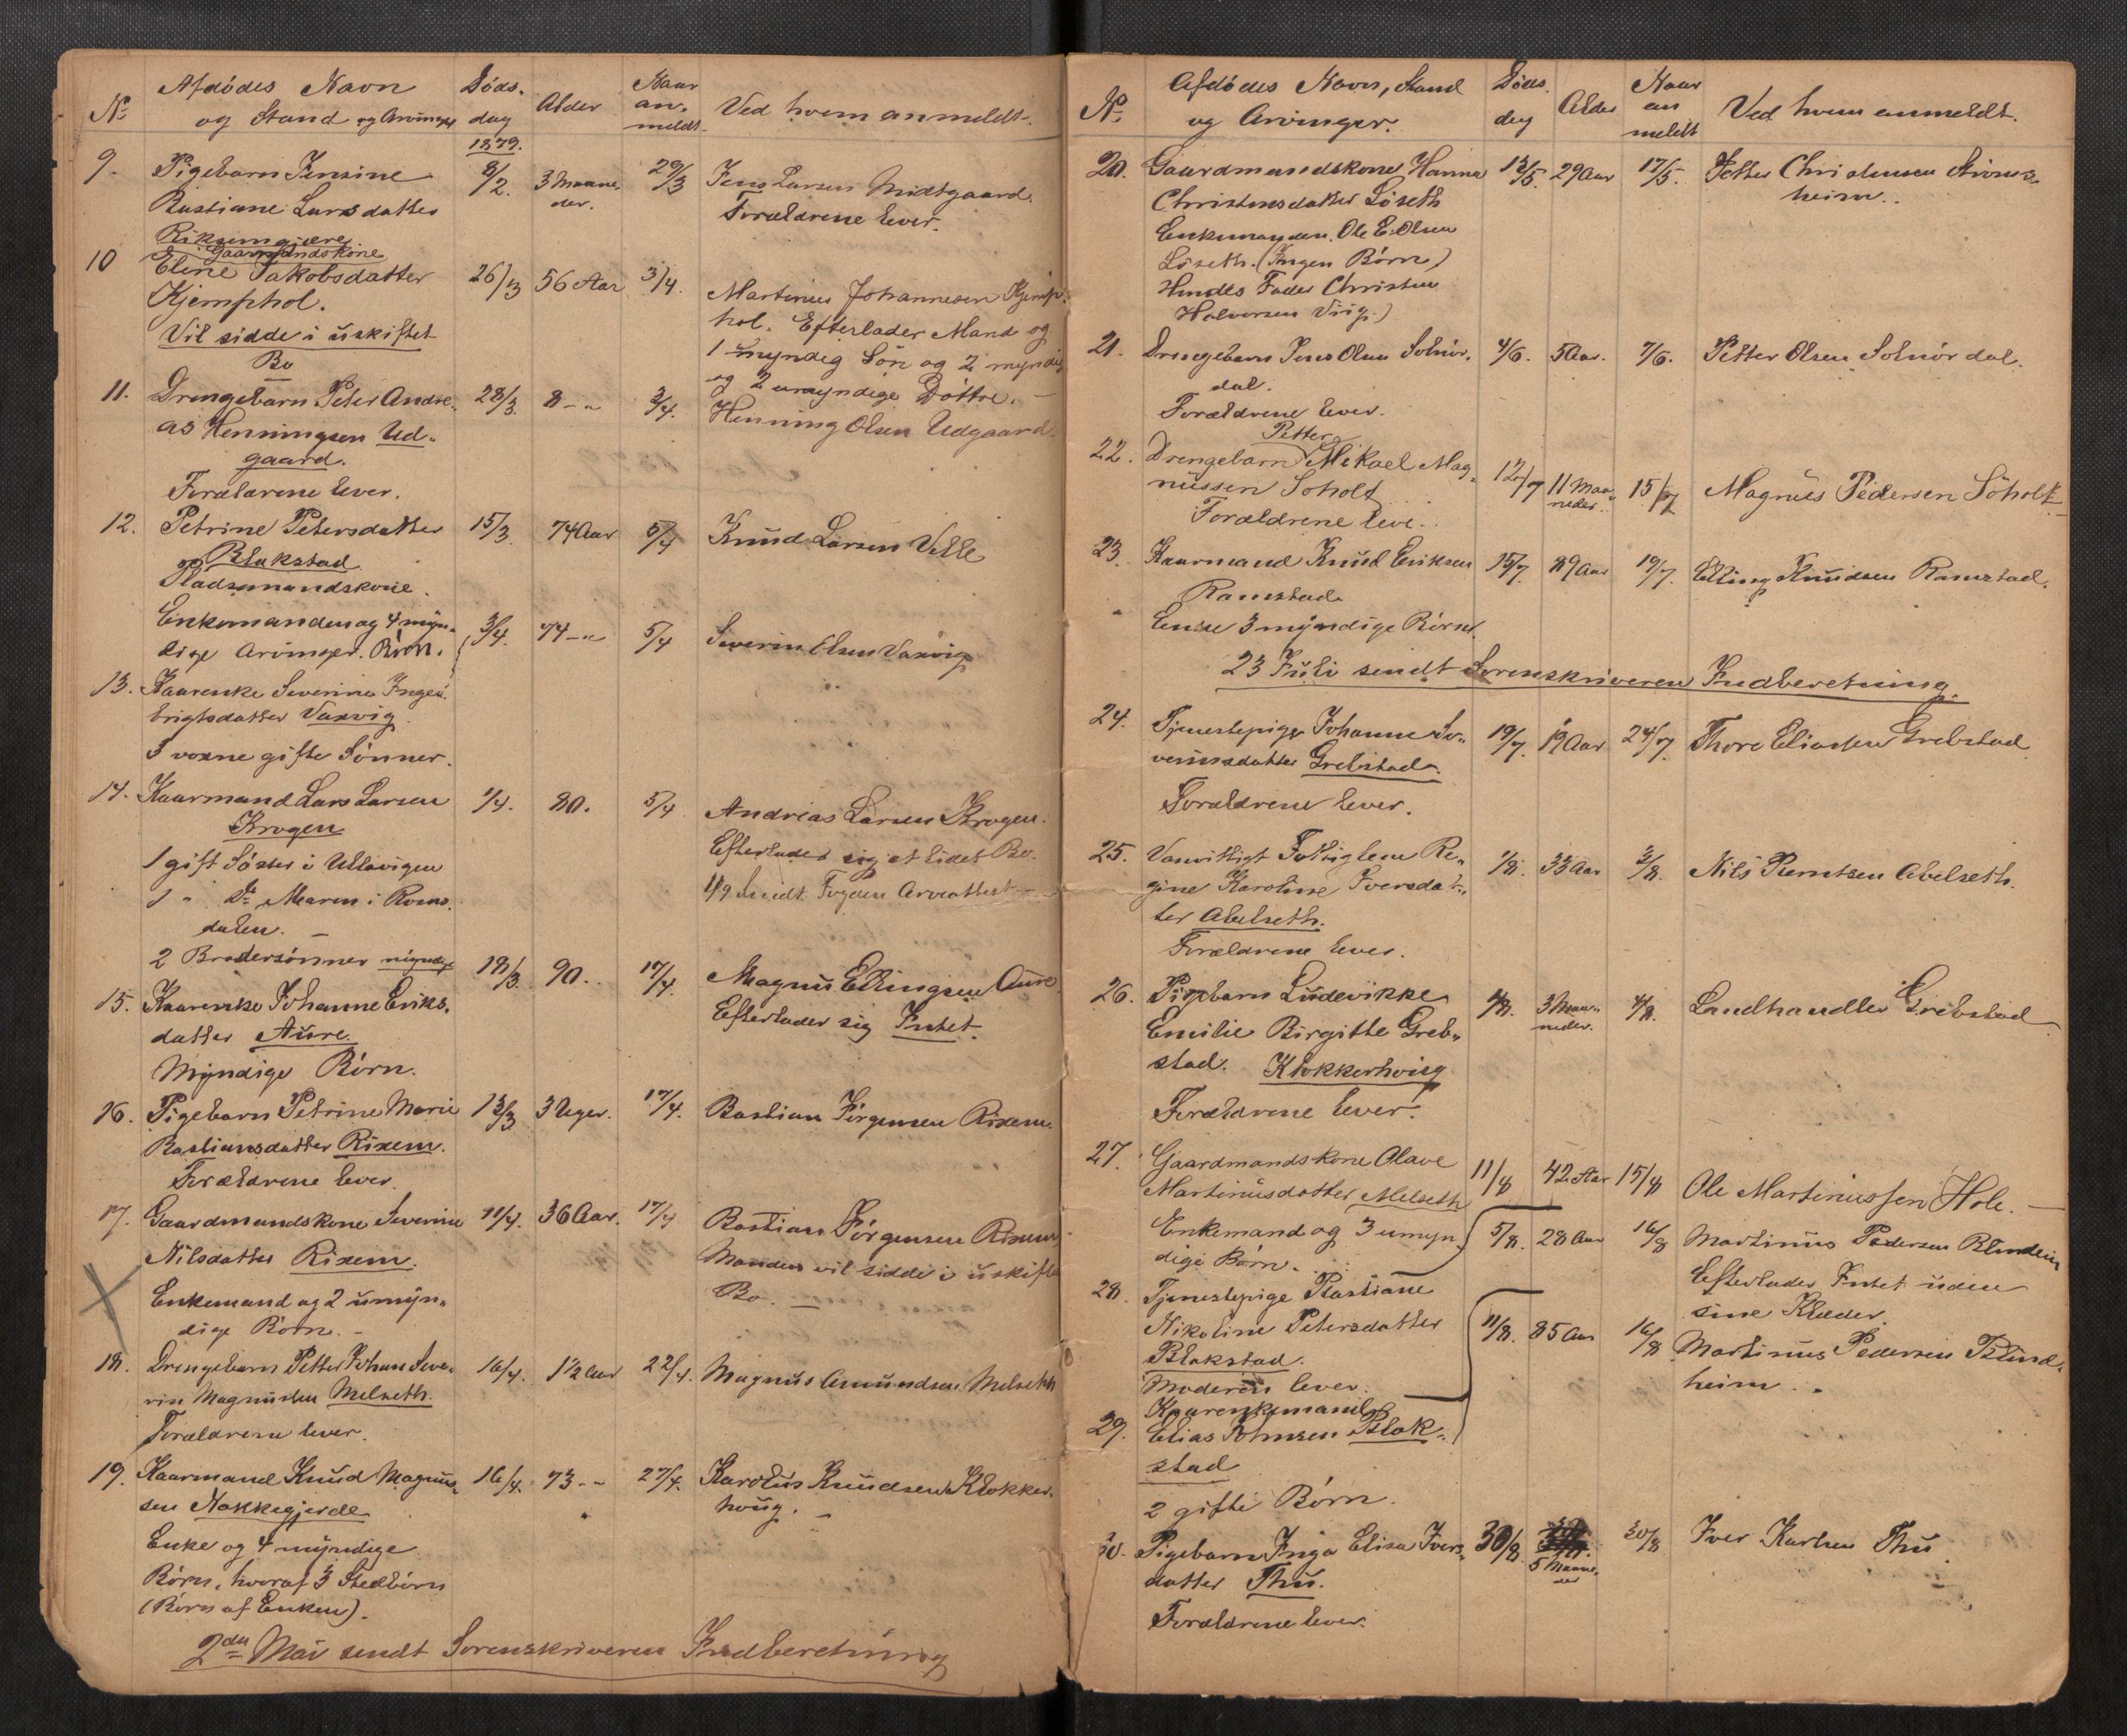 No
Afdødes Navn
og Stand og Arvinger
Døds-
dag
Alder
Naar
an-
meldt
Ved hvem anmeldt.
1879.
9. Pigebarn Jensine 8/2. 3 Maane- 29/3 Jens Larsen Midtgaard.
Bastiane Larsdatter der. Forældrene lever.
Riksemgjære
Gaardmandskone
10 Eline Jakobsdatter 26/3 56 Aar 3/4. Martinus Johannesen Kjemp-
Kjemphol. hol. Efterlader Mand og
Vil sidde i uskiftet 1 myndig Søn og 2 myndig
Bo og 2 umyndige Døttre. –
11. Drengebarn Peter Andre- 28/3. 8 – " 3/4. Henning Olsen Udgaard.
as Henningsen Ud-
gaard.
Forældrene lever.
12. Petrine Petersdatter 15/3. 74 Aar 5/4 Knud Larsen Velle
Blakstad
Pladsmandskone.
Enkemanden og 4 myn- 3/4. 74 – " 5/4 Severin Elsen Vaxvig
dige Arvinger. Børn.
13. Kaarenke Severine Inge-
brigtsdatter Vaxvig.
3 voxne gifte Sønner.
14. Kaarmand Lars Larsen 1/4. 80. 5/4 Andrias Larsen Krogen.
Krogen Efterlader sig et lidet Bo.
1 gift Søster i Ullavigen 4/9 sendt Fogden Arveattest
1 " Do Maren i Roms-
dalen. –
2 Brodersønner myndige
15. Kaarenke Johanne Eriks- 18/3. 90. 17/4. Magnus Ellingsen Aure.
datter Aure. Efterlader sig Intet.
Myndige Børn.
16. Pigebarn Petrine Marie 13/3 3 Uger. 17/4. Bastian Jørgensen Rixem.
Bastiansdatter Rixem.
Forældrene lever.
17. Gaardmandskone Severine 11/4. 36 Aar. 17/4 Bastian Jørgensen Rixem
Nilsdatter Rixem. Manden vil sidde i uskifte
Enkemand og 2 umyn- Bo. –
dige Børn. –
18. Drengebarn Petter Johan Seve- 16/4. 1½ Aar 22/4. Magnus Amundsen Melseth
rin Magnussen Melseth.
Forældrene lever.
19. Kaarmand Knud Magnus- 16/4. 73 – " 27/4. Karolus Knudsen Klokker-
sen Nakkegjerde houg. –
Enke og 4 myndige
Børn, hvoraf 3 Stedbørn
(Børn af Enken).
2den Mai sendt Sorenskriveren Indberetning
No
Afdødes Navn, Stand
og Arvinger.
Døds-
dag
Alder
Naar
an
meldt
Ved hvem anmeldt.
20. Gaardmandskone Hanna 13/5. 29 Aar 17/5. Petter Christensen Strøms-
Christensdatter Løseth heim.
Enkemanden Ole E. Olsen
Løseth. (Ingen Børn)
Hendes Fader Christen
Halvorsen Viig.)
21. Drengebarn Jens Olsen Solnør- 4/6. 5 Aar. 7/6. Petter Olsen Solnørdal.
dal.
Forældrene lever.
Petter
22. Drengebarn Mikael Mag- 12/7 11 Maa- 15/7. Magnus Pedersen Søholt
nussen Soholt neder.
Forældrene leve.
23. Kaarmand Knud Eriksen 15/7. 89 Aar 19/7. Elling Knudsen Ramstad.
Ramstad
Enke 3 myndige Børn.
23 Juli sendt Sorenskriveren Indberetning.
24. Tjenestepige Johanne Se- 19/7. 19 Aar 24/7. Thore Eliassen Grebstad
verinsdatter Grebstad.
Forældrene lever.
25. Vanvittigt Fattiglem Re- 1/8. 33 Aar 3/8. Nils Berntsen Abelseth.
gine Karoline Iversdat-
ter Abelseth.
Forældrene lever.
26. Pigebarn Ludevikke 4/8. 3 Maa- 4/8. Landhandler Grebstad
Emilie Birgitte Greb- neder.
stad. Klokkerhoug
Forældrene lever.
27. Gaardmandskone Olave 11/8 42 Aar 15/8 Ole Martinussen Hole. –
Martinusdatter Melseth
Enkemand og 3 umyn- 5/8. 28 Aar 16/8 Martinus Pedersen Blindeim
dige Børn. Efterlader Intet uden
28. Tjenestepige Bastiane sine Klæder.
Nikoline Petersdatter 11/8. 85 Aar 16/8 Martinus Pedersen Blind-
Blakstad. heim.
Moderen lever.
Kaarenkemand
29. Elias Johnsen Blak-
stad
2 gifte Børn.
30. Pigebarn Inga Elisa Ivers- 30/8. 5 Maane- 30/8 Iver Karlsen Thu
datter Thu. der
Forældrene lever.